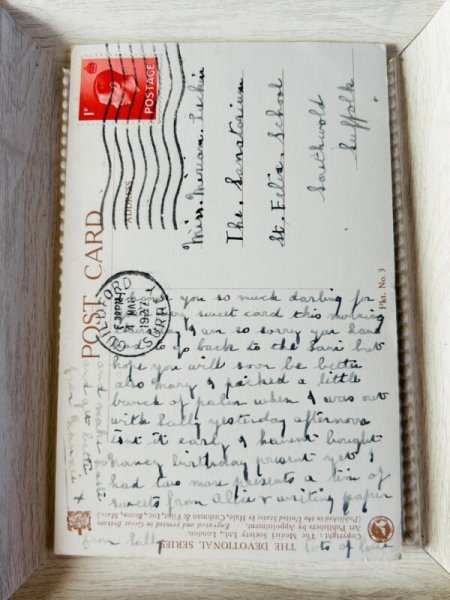 POST CARD
ADDRESS
1D
POSTAGE
GUILDFORD
SURREY
4 MAR
1937
Miss. Miriam
The. Sanatorium
St. Felix School
Southwold
Suffolk
Pkt. No. 3
you so much darling for
sweet card this morning
I am so sorry you have
to go back to the sani but
hope you will soon be better
also Mary I picked a little
bunch of palm when I was out
with Sally yesterday afternoon
isnt it early I havent bought
nancy birthday present yet I
had two more presents a tin of
sweets from Alice & writing paper
from Sally
lots of love
THE DEVOTIONAL SERIES
Copyright : The Medici Society Ltd., London.
Art Publishers by Appointment. Engraved and printed in Great Britain
(Published in the United States by Hale, Cushman & Flint, Inc., Boston, Mass.)